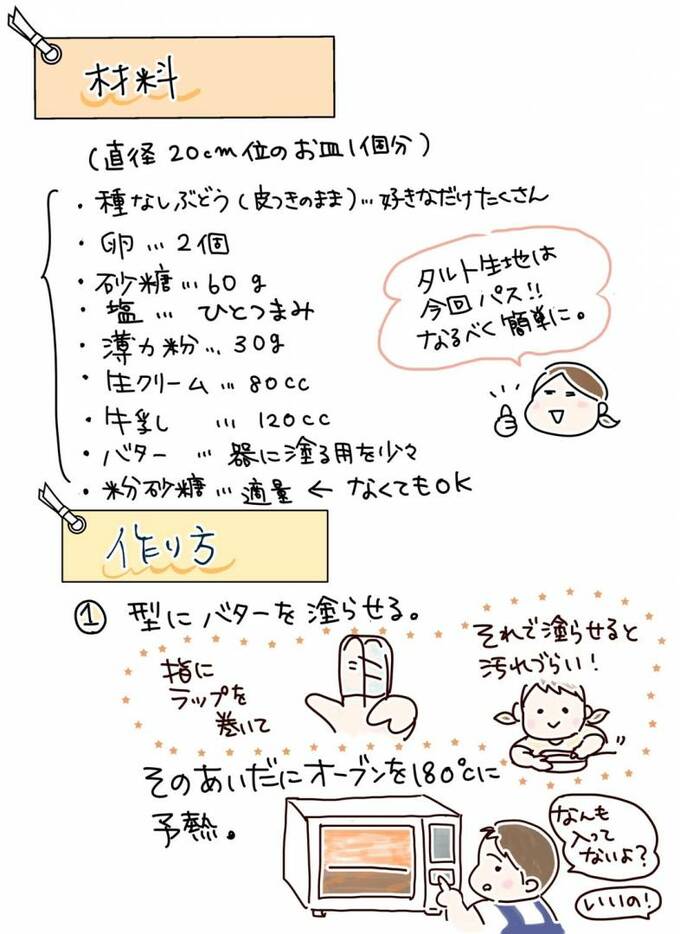 材料
(直径20cm位のお皿1個分)
・種なしぶどう(皮つきのまま)…好きなだけたくさん
・卵…2個
・砂糖…60g
・塩…ひとつまみ
・薄力粉…30g
・生クリーム…80cc
・牛乳…120cc
・バター…器に塗る用を少々
・粉砂糖…適量←なくてもOK
タルト生地は
今回パス!!
なるべく簡単に。
作り方
① 型にバターを塗らせる。
指に
ラップを
巻いて
それで塗らせると
汚れづらい!
そのあいだにオーブンを180℃に
予熱。
なんも
入って
ないよ?
いいの!